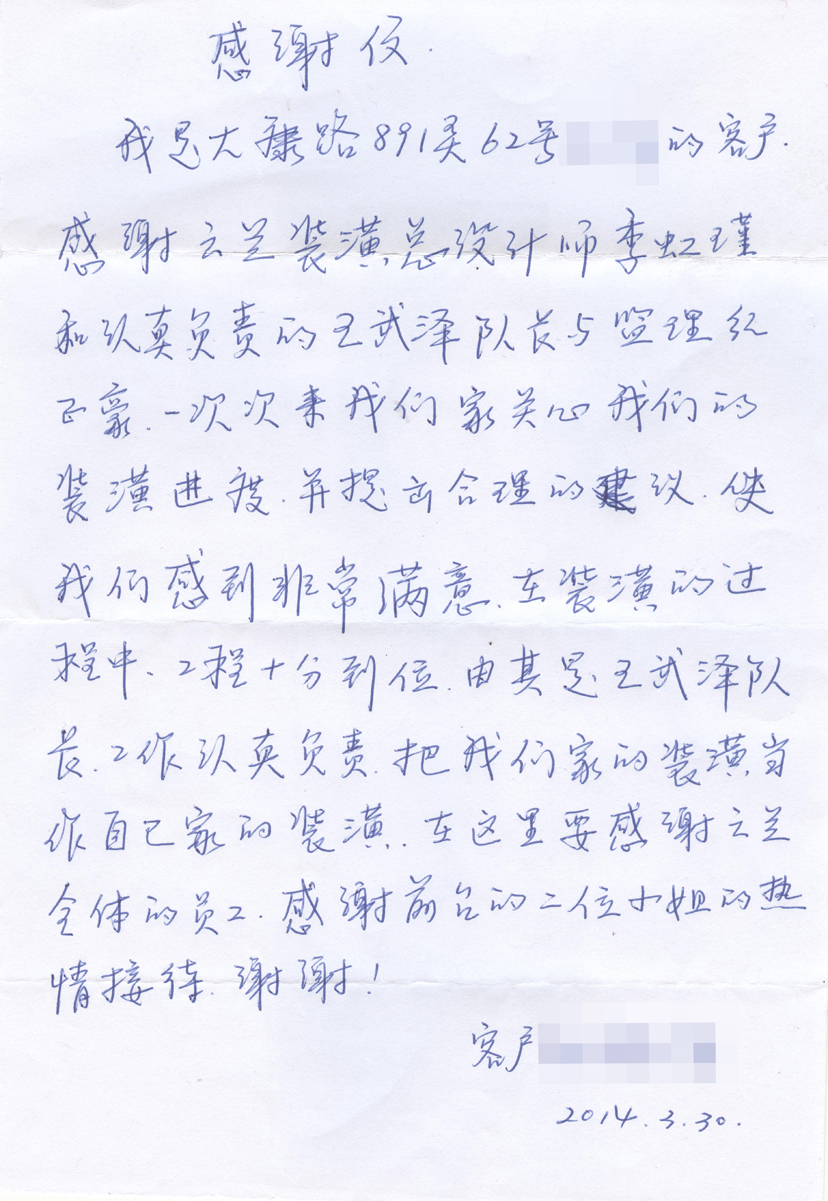 感谢信.
我是大康路891弄62号 的客户.
感谢云兰装潢总设计师李虹瑾
和认真负责的王武泽队长与监理纪
正豪.一次次来我们家关心我们的
装潢进度.并提出合理的建议.使
我们感到非常满意.在装潢的过
程中、工程十分到位.由其是王武泽队
长.工作认真负责.把我们家的装潢当
作自己家的装潢.在这里要感谢云兰
全体的员工.感谢前台的二位小姐的热
情接待.谢谢!
客户
2014.3.30.